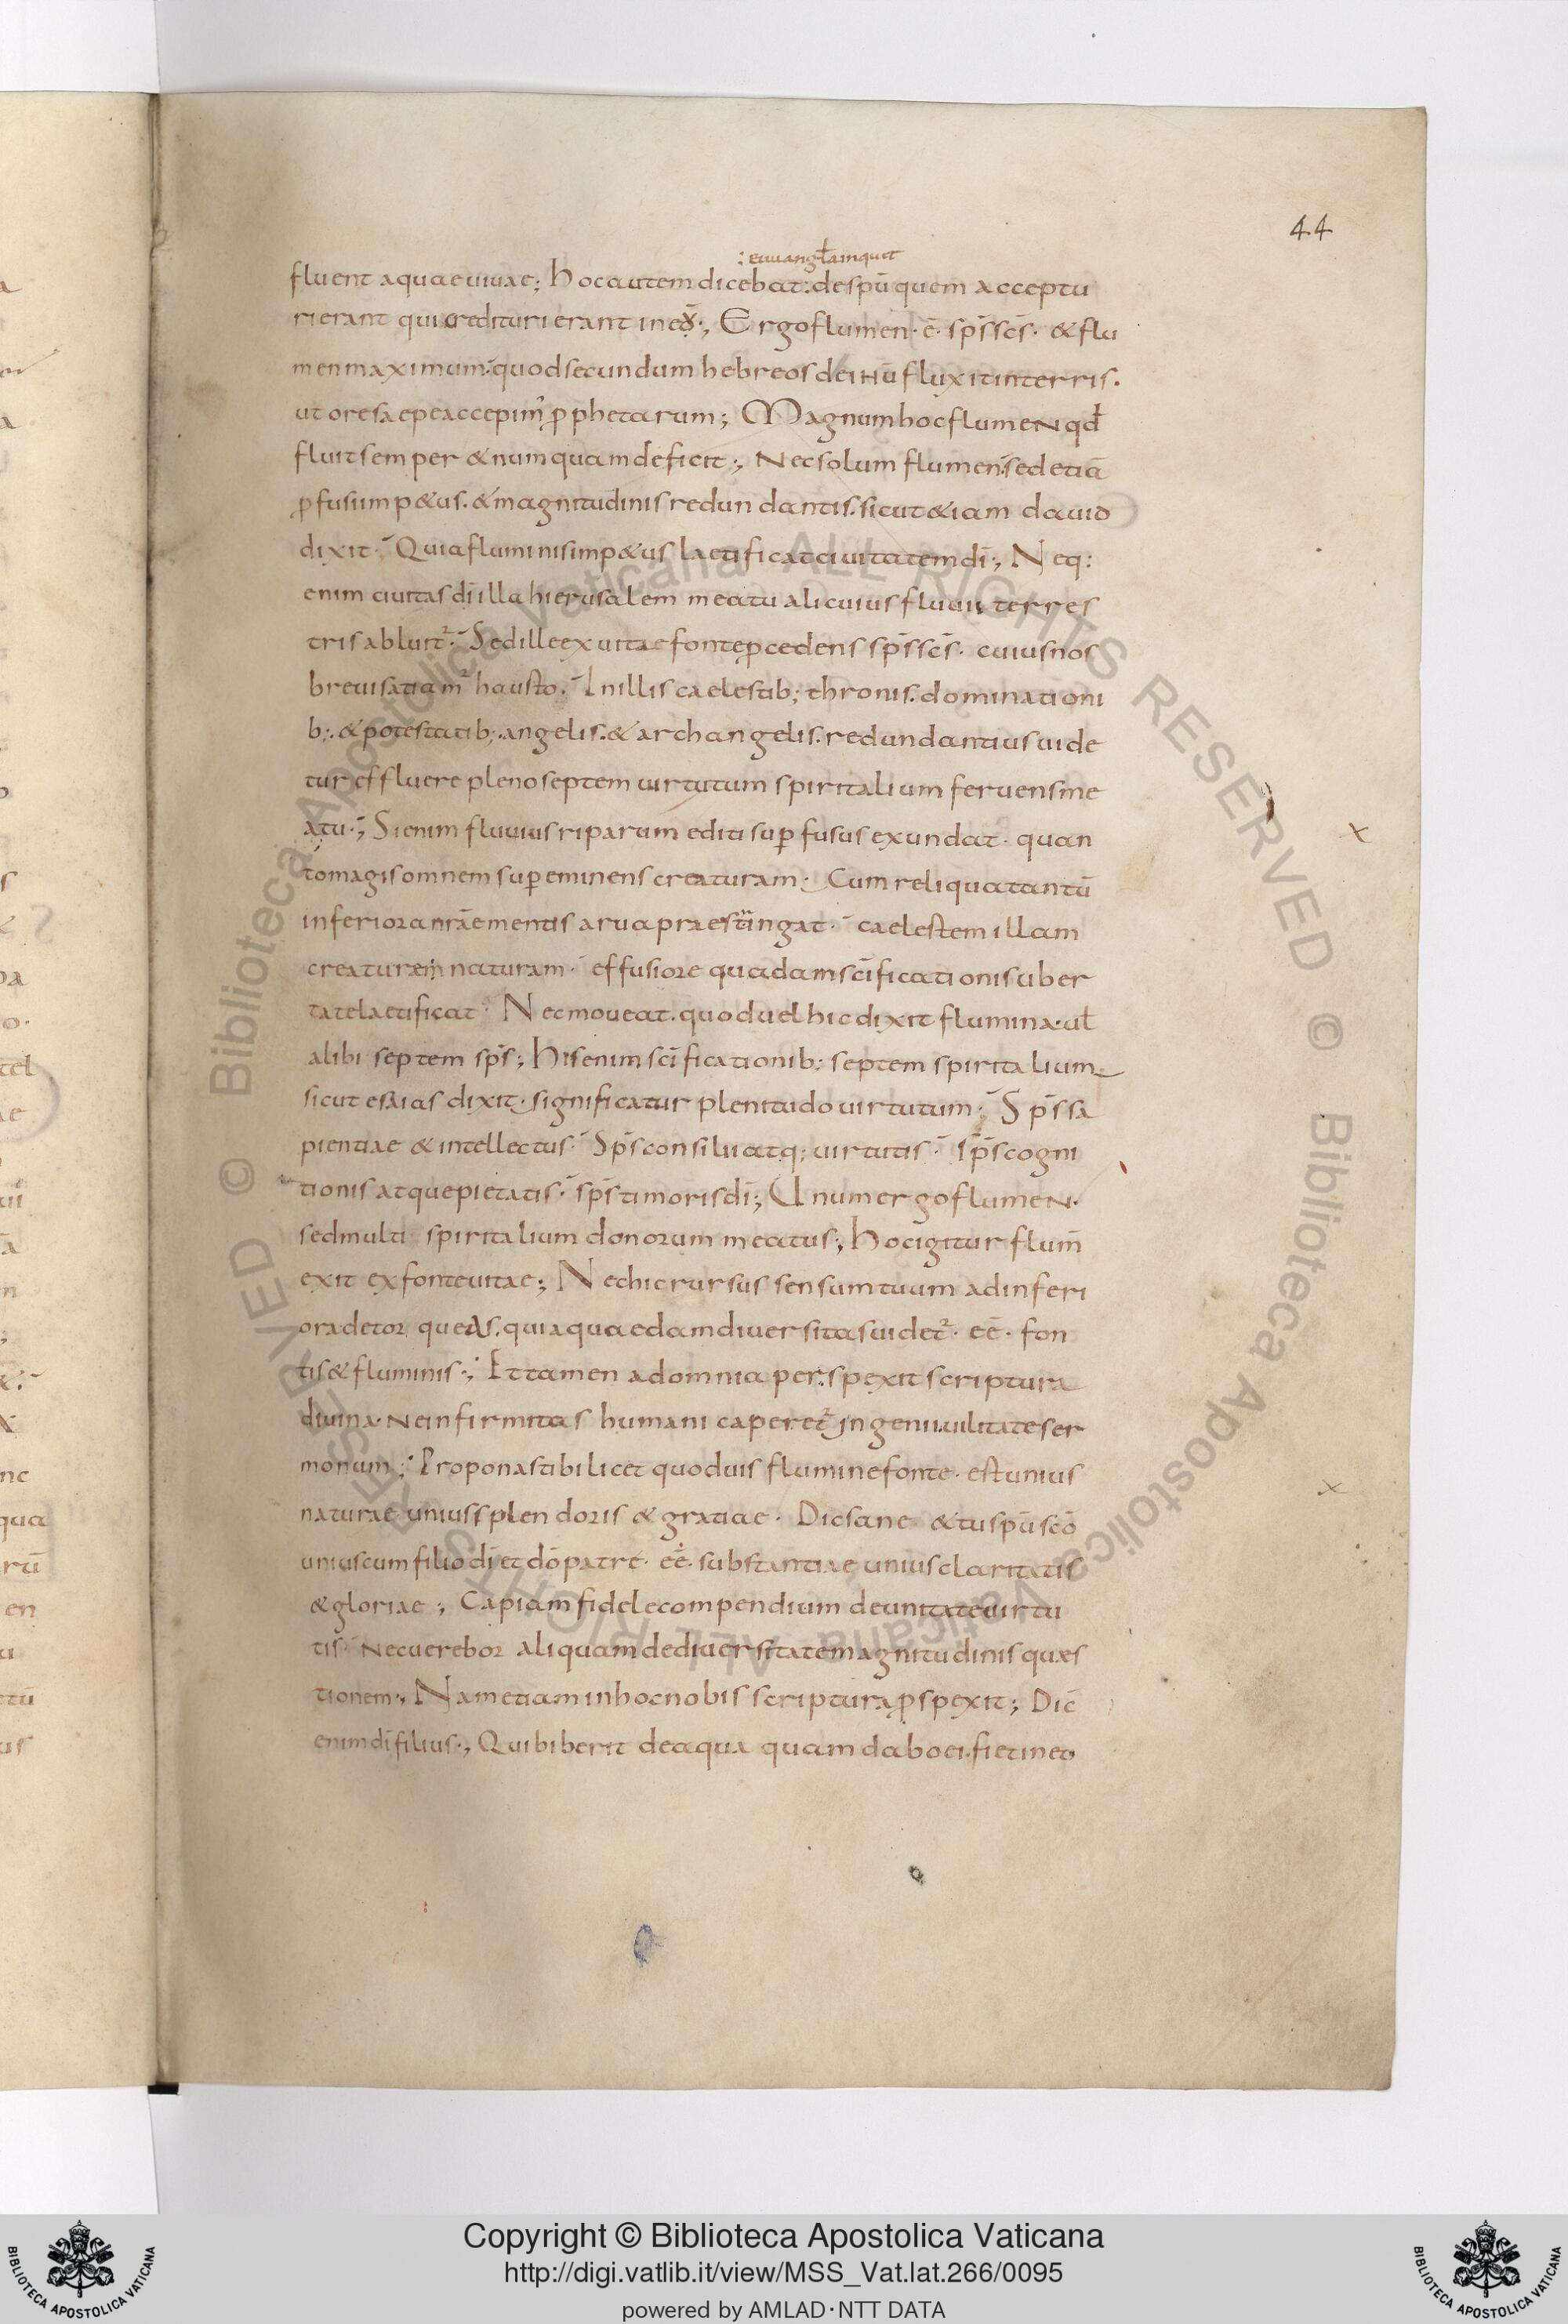 44
: euuangƚ a inquit
fluent aquae uiuae; hoc autem dicebat: de spū quem acceptu
ri erant qui credituri erant in eo·; Ergo flumen· ē· sp̄s sc̄s· & flu
men maximum· quod secundum hebreos de ihū fluxit in terris.
ut ore saepe accepim᾽ ꝓphetarum; Magnum hoc flumen qđ
fluit semper & numquam deficit·; Nec solum flumen· sed etiā
ꝓfusi imp&us. & magnitudinis redundantis. sicut & iam dauid
dixit· Quia fluminis imp&us laetificat ciuitatem dī·; Neq:
enim ciuitas dī illa hierusalem meatu alicuius fluuii terres
tris abluit᷑· Sed ille ex uitae fonte ꝓcedens sp̄s sc̄s· cuius nos
breui satiam᷑ hausto· In illis caelestib; thronis. dominationi
b:. & potestatib;. angelis. & archangelis. redundantius uide
tur effluere pleno septem uirtutum spiritalium feruens me
atu·; Si enim fluuius riparum editi suꝑfusus exundat· quan
to magis omnem suꝑeminens creaturam· Cum reliqua tantū
inferiora nr̄ae mentis arua praestingat· caelestem illam
creaturem naturam· effusiore quadam scīficationis uber
tate laetificat· Nec moueat. quod uel hic dixit flumina· uƚ
alibi septem sp̄s; His enim scīficationib: septem spiritalium
sicut esaias dixit· significatur plenitudo uirtutum· Sp̄s sa
pientiae & intellectus· Sp̄s consilii atq; uirtutis· sp̄s cogni
tionis atque pietatis· sp̄s timoris dī; Unum ergo flumen·
sed multi spiritalium donorum meatus·; hoc igitur flum̄
exit ex fonte uitae; Nec hic rursus sensum tuum ad inferi
ora detorqueas. quia quaedam diuersitas uidet᷑· eē· fon
tis & fluminis·; Et tamen ad omnia perspexit scriptura
diuina· ne infirmitas humani caperet᷑ ingenii uilitate ser
monum; Proponas tibi licet quoduis flumine fonte· est unius
naturae unius splendoris & gratiae· Dic sane & tu spū scō
unius cum filio dī et dō patre· eē· substantiae unius claritatis
& gloriae·; Capiam fidele compendium de unitate uirtu
tis· nec uerebor aliquam de diuersitate magnitudinis quæs
tionem·; Nam etiam in hoc nobis scriptura ꝓspexit; Dic̄
enim dī filius·; Qui biberit de aqua quam dabo ei. fiet in eo
Copyright © Biblioteca Apostolica Vaticana
http://digi.vatlib.it/view/MSS_Vat.lat.266/0095
powered by AMLAD·NTT DATA
BIBLIOTECA APOSTOLICA VATICANA
BIBLIOTECA APOSTOLICA VATICANA